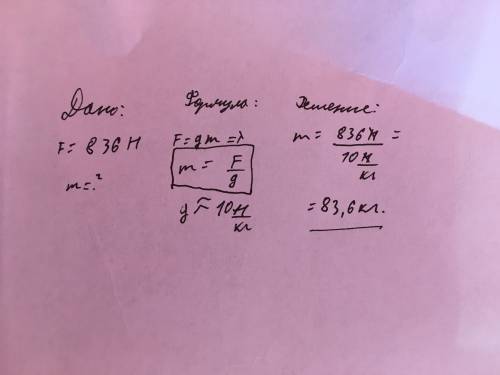 Дано:
F = 836 Н
m = ?
Формула:
F = gm =>
m = F/g
g ≈ 10 Н/кг
Решение:
m = 836 Н / 10 Н/кг =
= 83,6 кг.